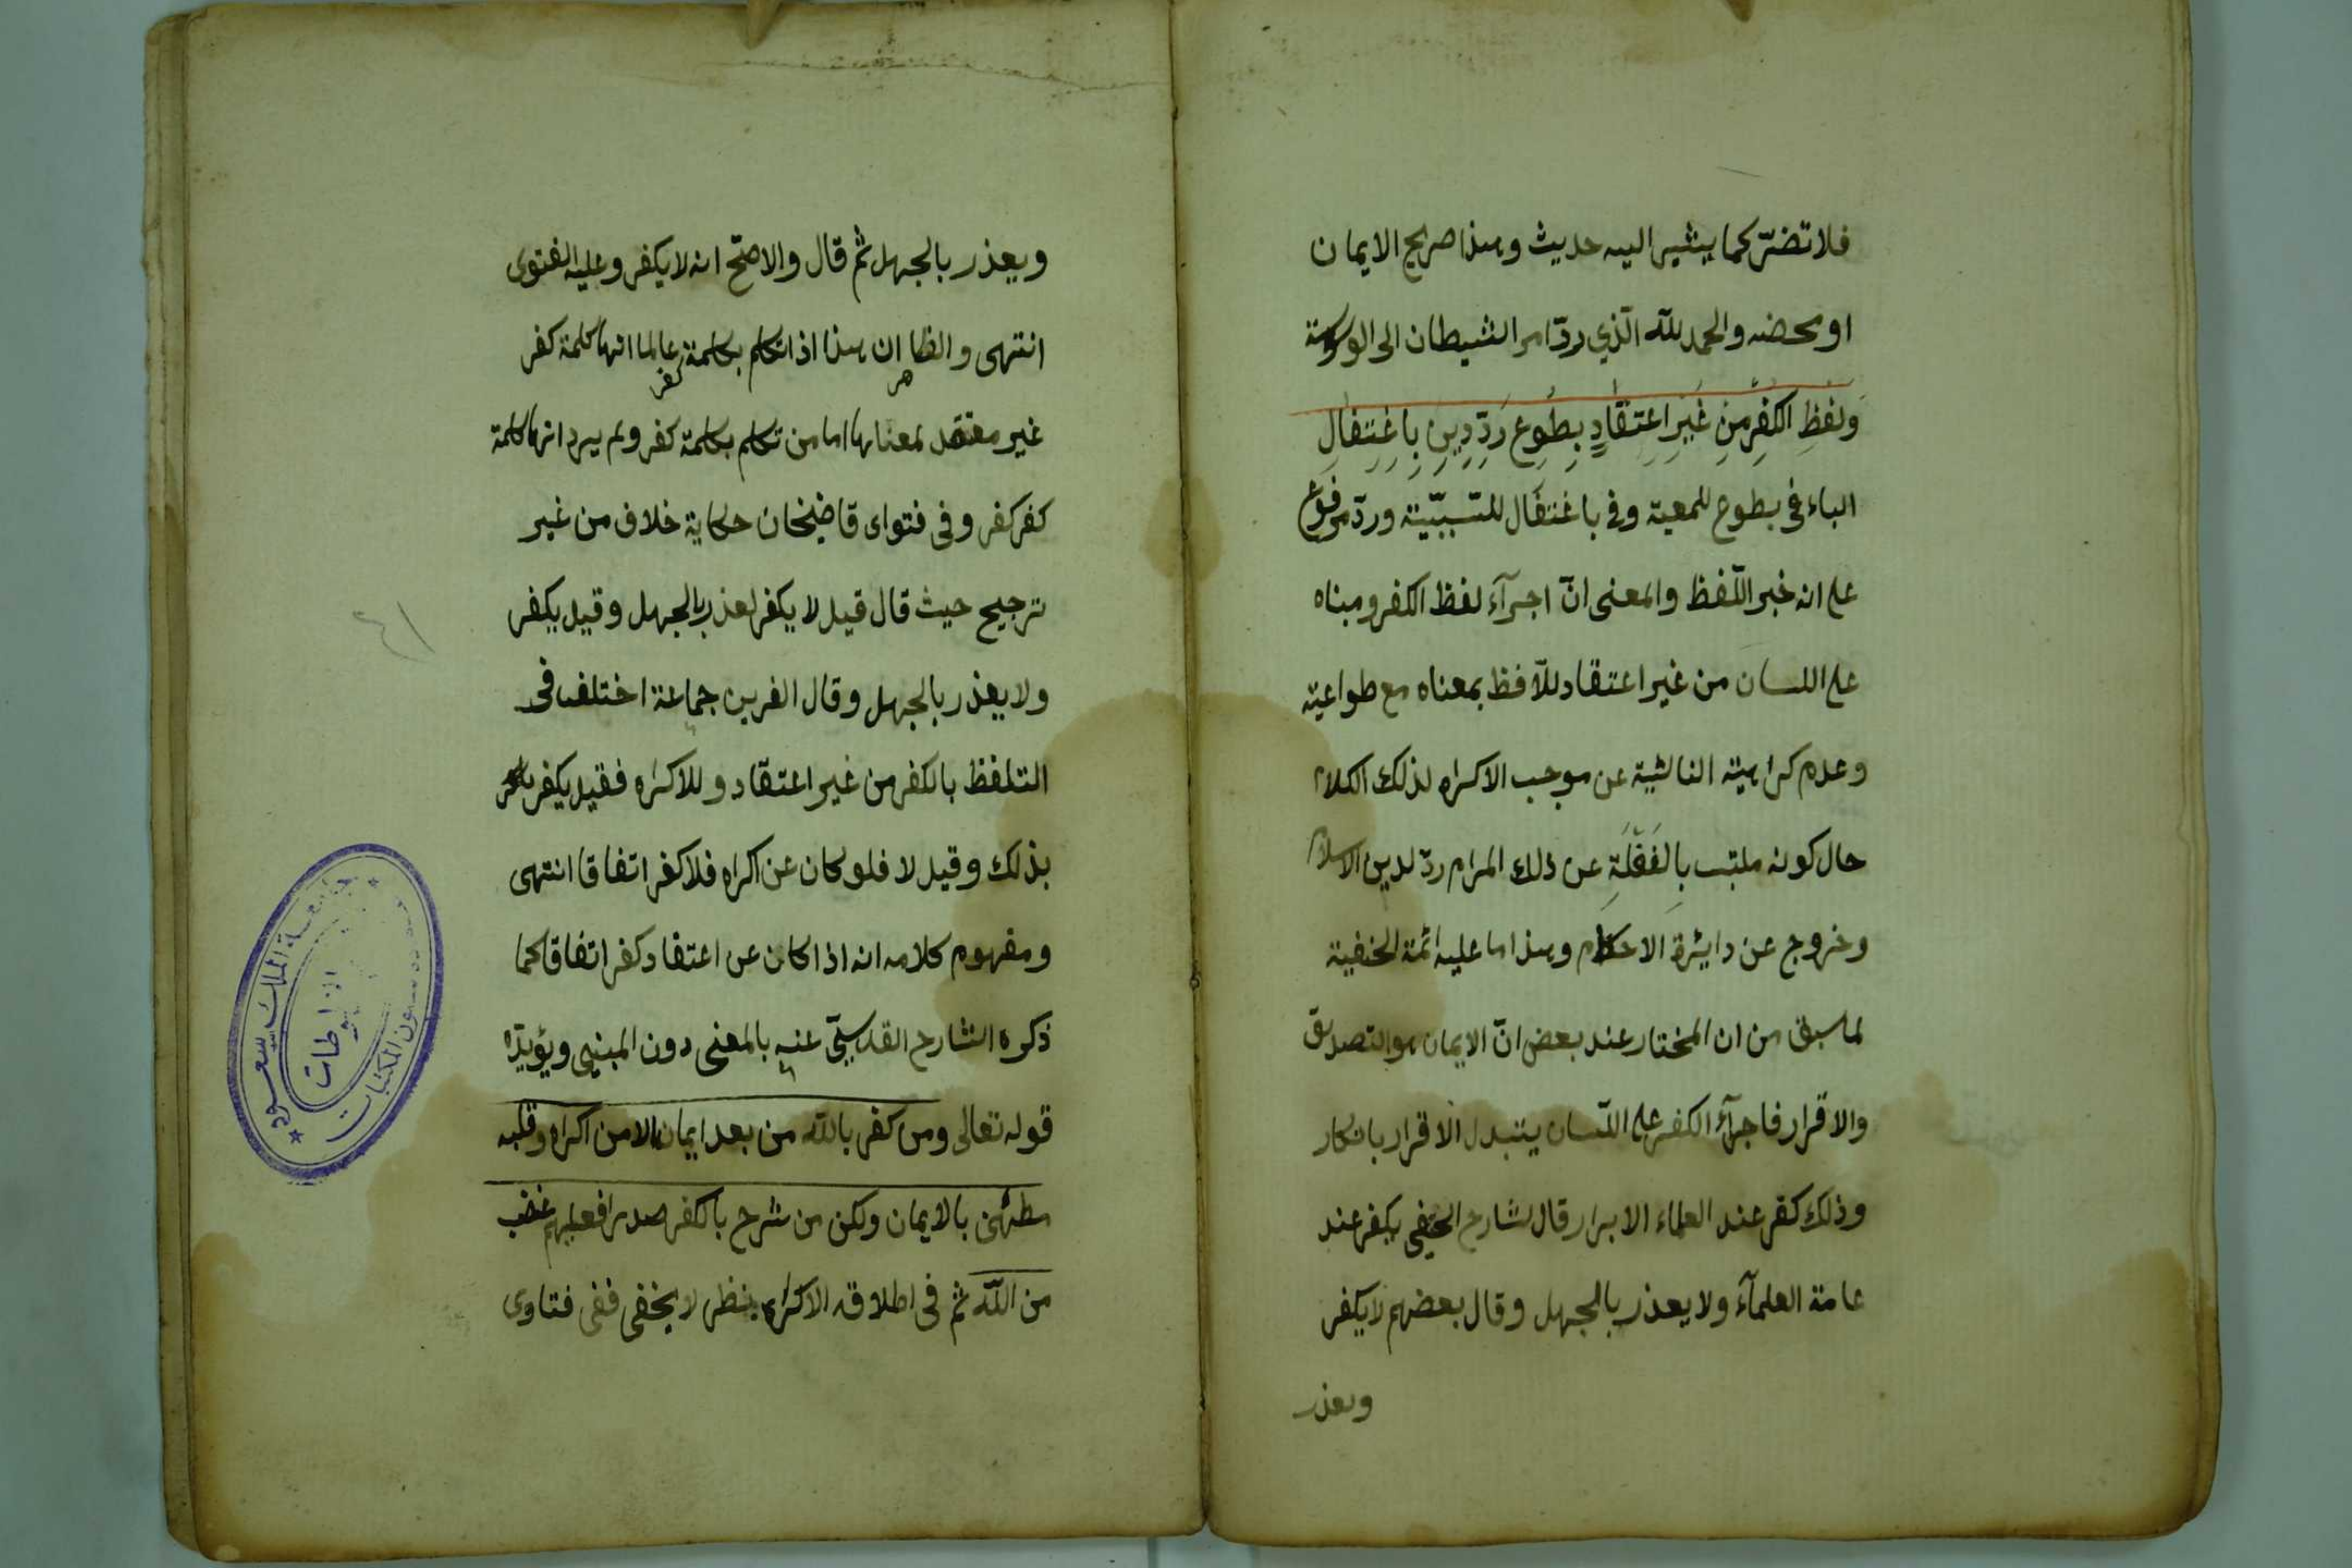 فلا تضرّ كما يشير اليه حديث وهذا صريح الايمان
او محضه والحمد للّه الّذي ردّ امر الشيطان الى الوسوسة
وَلفظِ الكُفرِ مِن غَيرِ اعتِقادٍ بِطَوعٍ رَدُّ دِينٍ بِاغتِفالِ
الباء في بطوع للمعية وفي باغتفال للتسبّبيّة وردّ مرفوع
على انه خبر اللّفظ والمعنى انّ اجرآء لفظ الكفر ومبناه
على اللسان من غير اعتقاد للّافظ بمعناه مع طواعيته
وعدم كراهيته الناشية عن موجب الاكراه لذلك الكلام
حال كونه ملتبس بِالغَفْلَةِ عن ذلك المرام ردّ لدين الاسلام
وخروج عن دايئرة الاحكام وهذا ما عليه ائمة الحنفية
لما سبق من ان المختار عند بعض انّ الايمان هو التصديق
والاقرار فاجرآء الكفر على اللّسان يتبدل الاقرار بانكار
وذلك كفر عند العلماء الابرار قال لشارح الحنفى يكفر عند
عامة العلمآء ولا يعذر بالجهل وقال بعضهم لا يكفر
ويعذر
ويعذر بالجهل ثم قال والاصحّ انه لا يكفر وعليه الفتوى
انتهى والظاهر ان هذا اذا تكلم بكلمة كفر عالما انها كلمة كفر
غير معتقد لمعناها اما من تكلم بكلمة كفر ولم يرد انها كلمة
كفر كفر وفى فتواى قاضيخان حكاية خلاف من غير
ترجيح حيث قال قيل لا يكفر لعذر بالجهل وقيل يكفر
ولا يعذر بالجهل وقال الغربن جماعة اختلف فى
التلفظ بالكفر من غير اعتقاد وللاكراه فقيل يكفر
بذلك وقيل لا فلو كان عن اكراه فلا كفر اتفاقا انتهى
ومفهوم كلامه انه اذا كان عن اعتقاد كفر اتفاقا كما
ذكره الشارح القدسيّ عنه بالمعنى دون المبنى ويؤيدّه
قوله تعالى ومن كفر باللّه من بعد ايمانه الا من اكراه وقلبه
مطمئن بالايمان ولكن من شرح بالكفر صدرا فعليهم غضب
من اللّه ثم فى اطلاقه الاكراه ينظر لا يخفى ففى فتاوى
٤١
جامعة الملك سعود
المكتبات